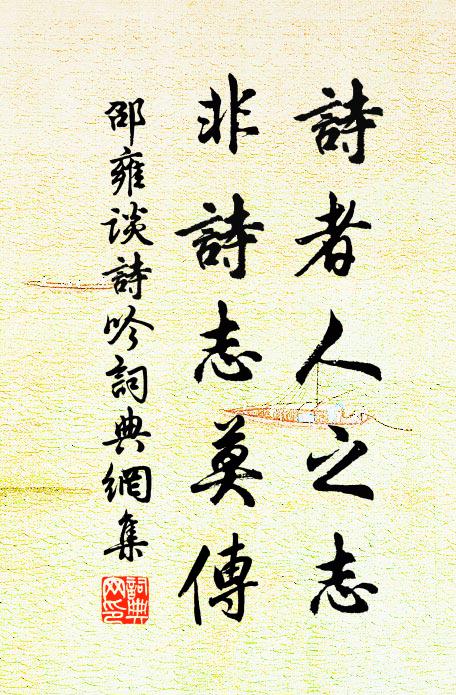 詩者人之志
非詩志莫傳
邵雍談詩吟詞典網集
詞典
网印